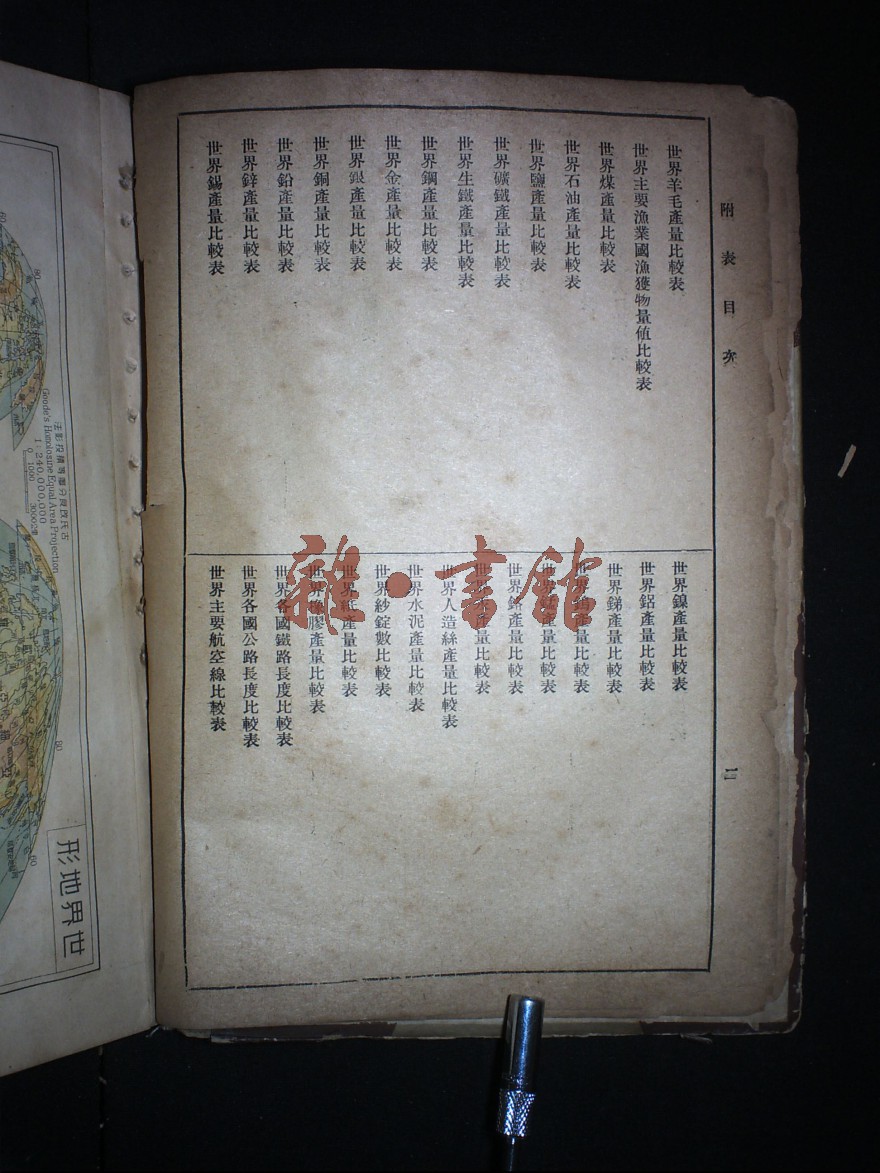 附表目次
世界羊毛產量比較表
世界主要漁業國漁獲物量值比較表
世界煤產量比較表
世界石油產量比較表
世界鹽產量比較表
世界礦鐵產量比較表
世界生鐵產量比較表
世界鋼產量比較表
世界金產量比較表
世界銀產量比較表
世界銅產量比較表
世界鉛產量比較表
世界鋅產量比較表
世界錫產量比較表
世界鎳產量比較表
世界鈷產量比較表
世界銻產量比較表
世界產量比較表
世界產量比較表
世界鉻產量比較表
世界產量比較表
世界人造絲產量比較表
世界水泥產量比較表
世界紗錠數比較表
世界紙產量比較表
世界橡膠產量比較表
世界各國鐵路長度比較表
世界各國公路長度比較表
世界主要航空線比較表
二
雜·書館
世界地形
古氏改良分瓣等積投影法
Goode's Homolosine Equal Area Projection
1:240,000,000